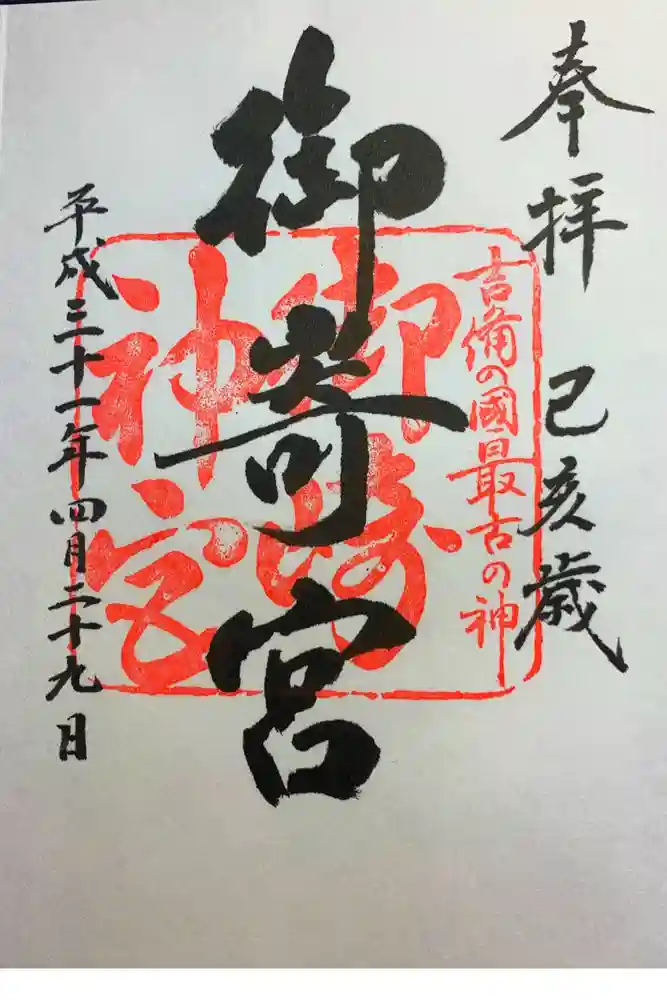 奉拝 己亥歳
吉備の國最古の神
御崎
神宮
御寄宮
平成三十一年四月二十九日